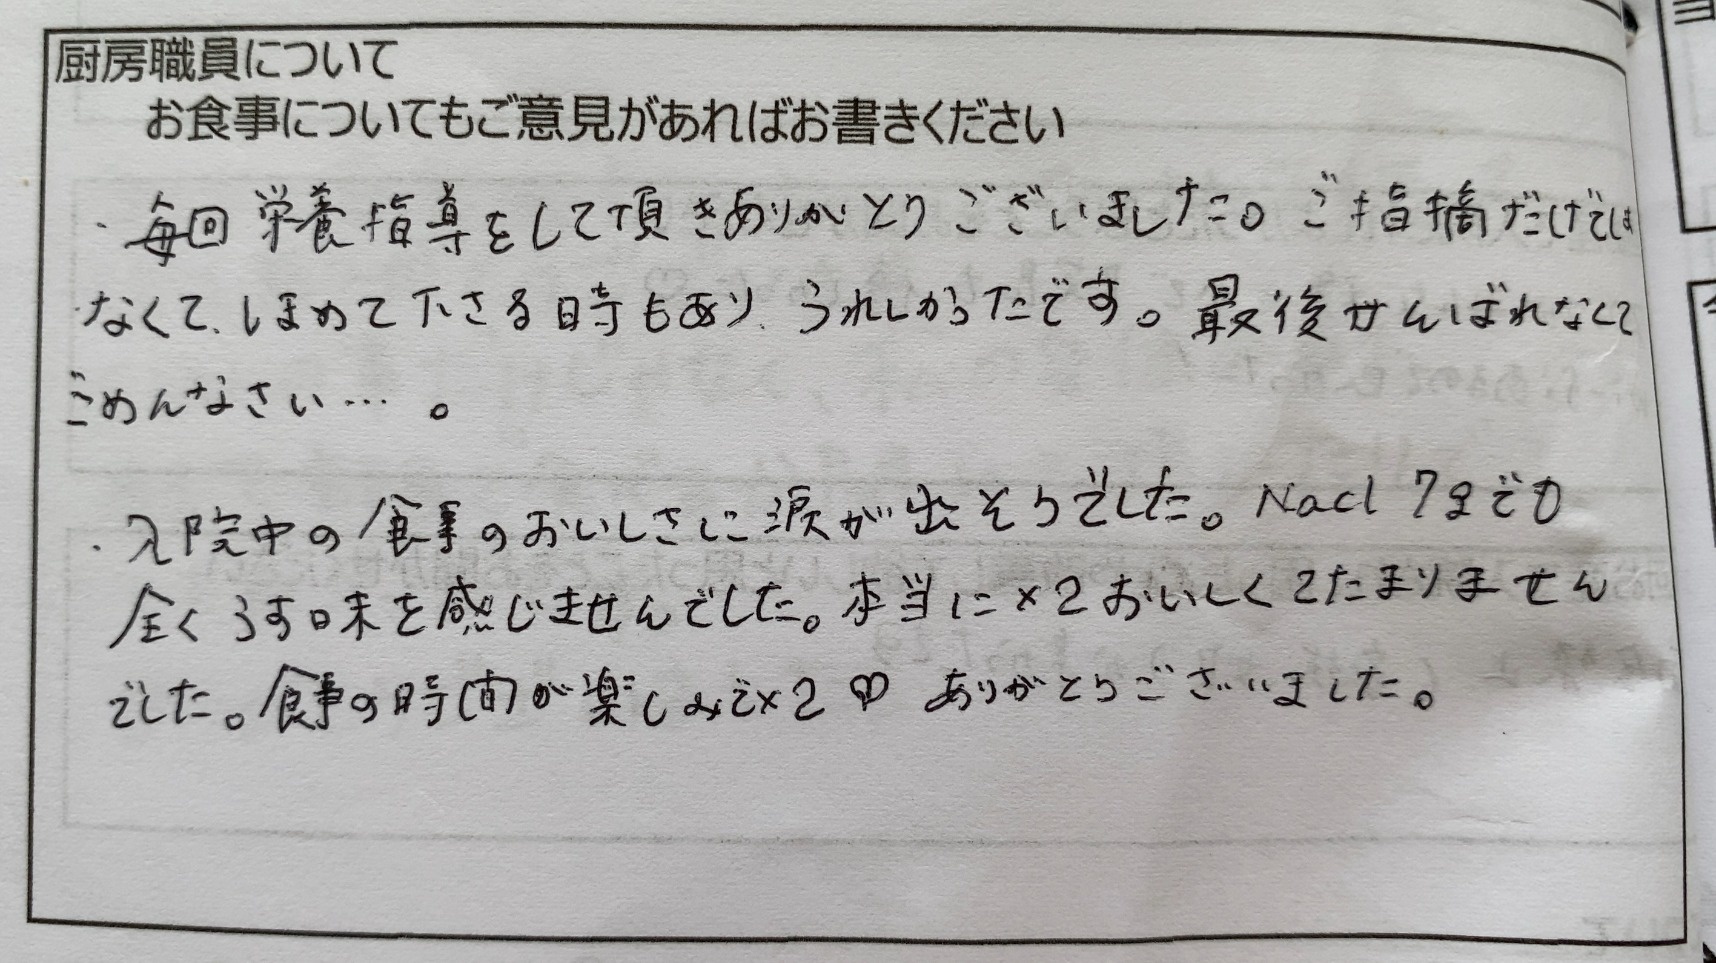 厨房職員について
お食事についてもご意見があればお書きください
・毎回栄養指導をして頂きありがとうございました。ご指摘だけでは
なくて、ほめて下さる時もあり、うれしかったです。最後せんばれなくて
ごめんなさい…。
・入院中の食事のおいしさに涙が出そうでした。Nacl 7gでも
全くうす味を感じませんでした。本当に×2おいしくてたまりません
でした。食事の時間が楽しみで×2♡ ありがとうございました。